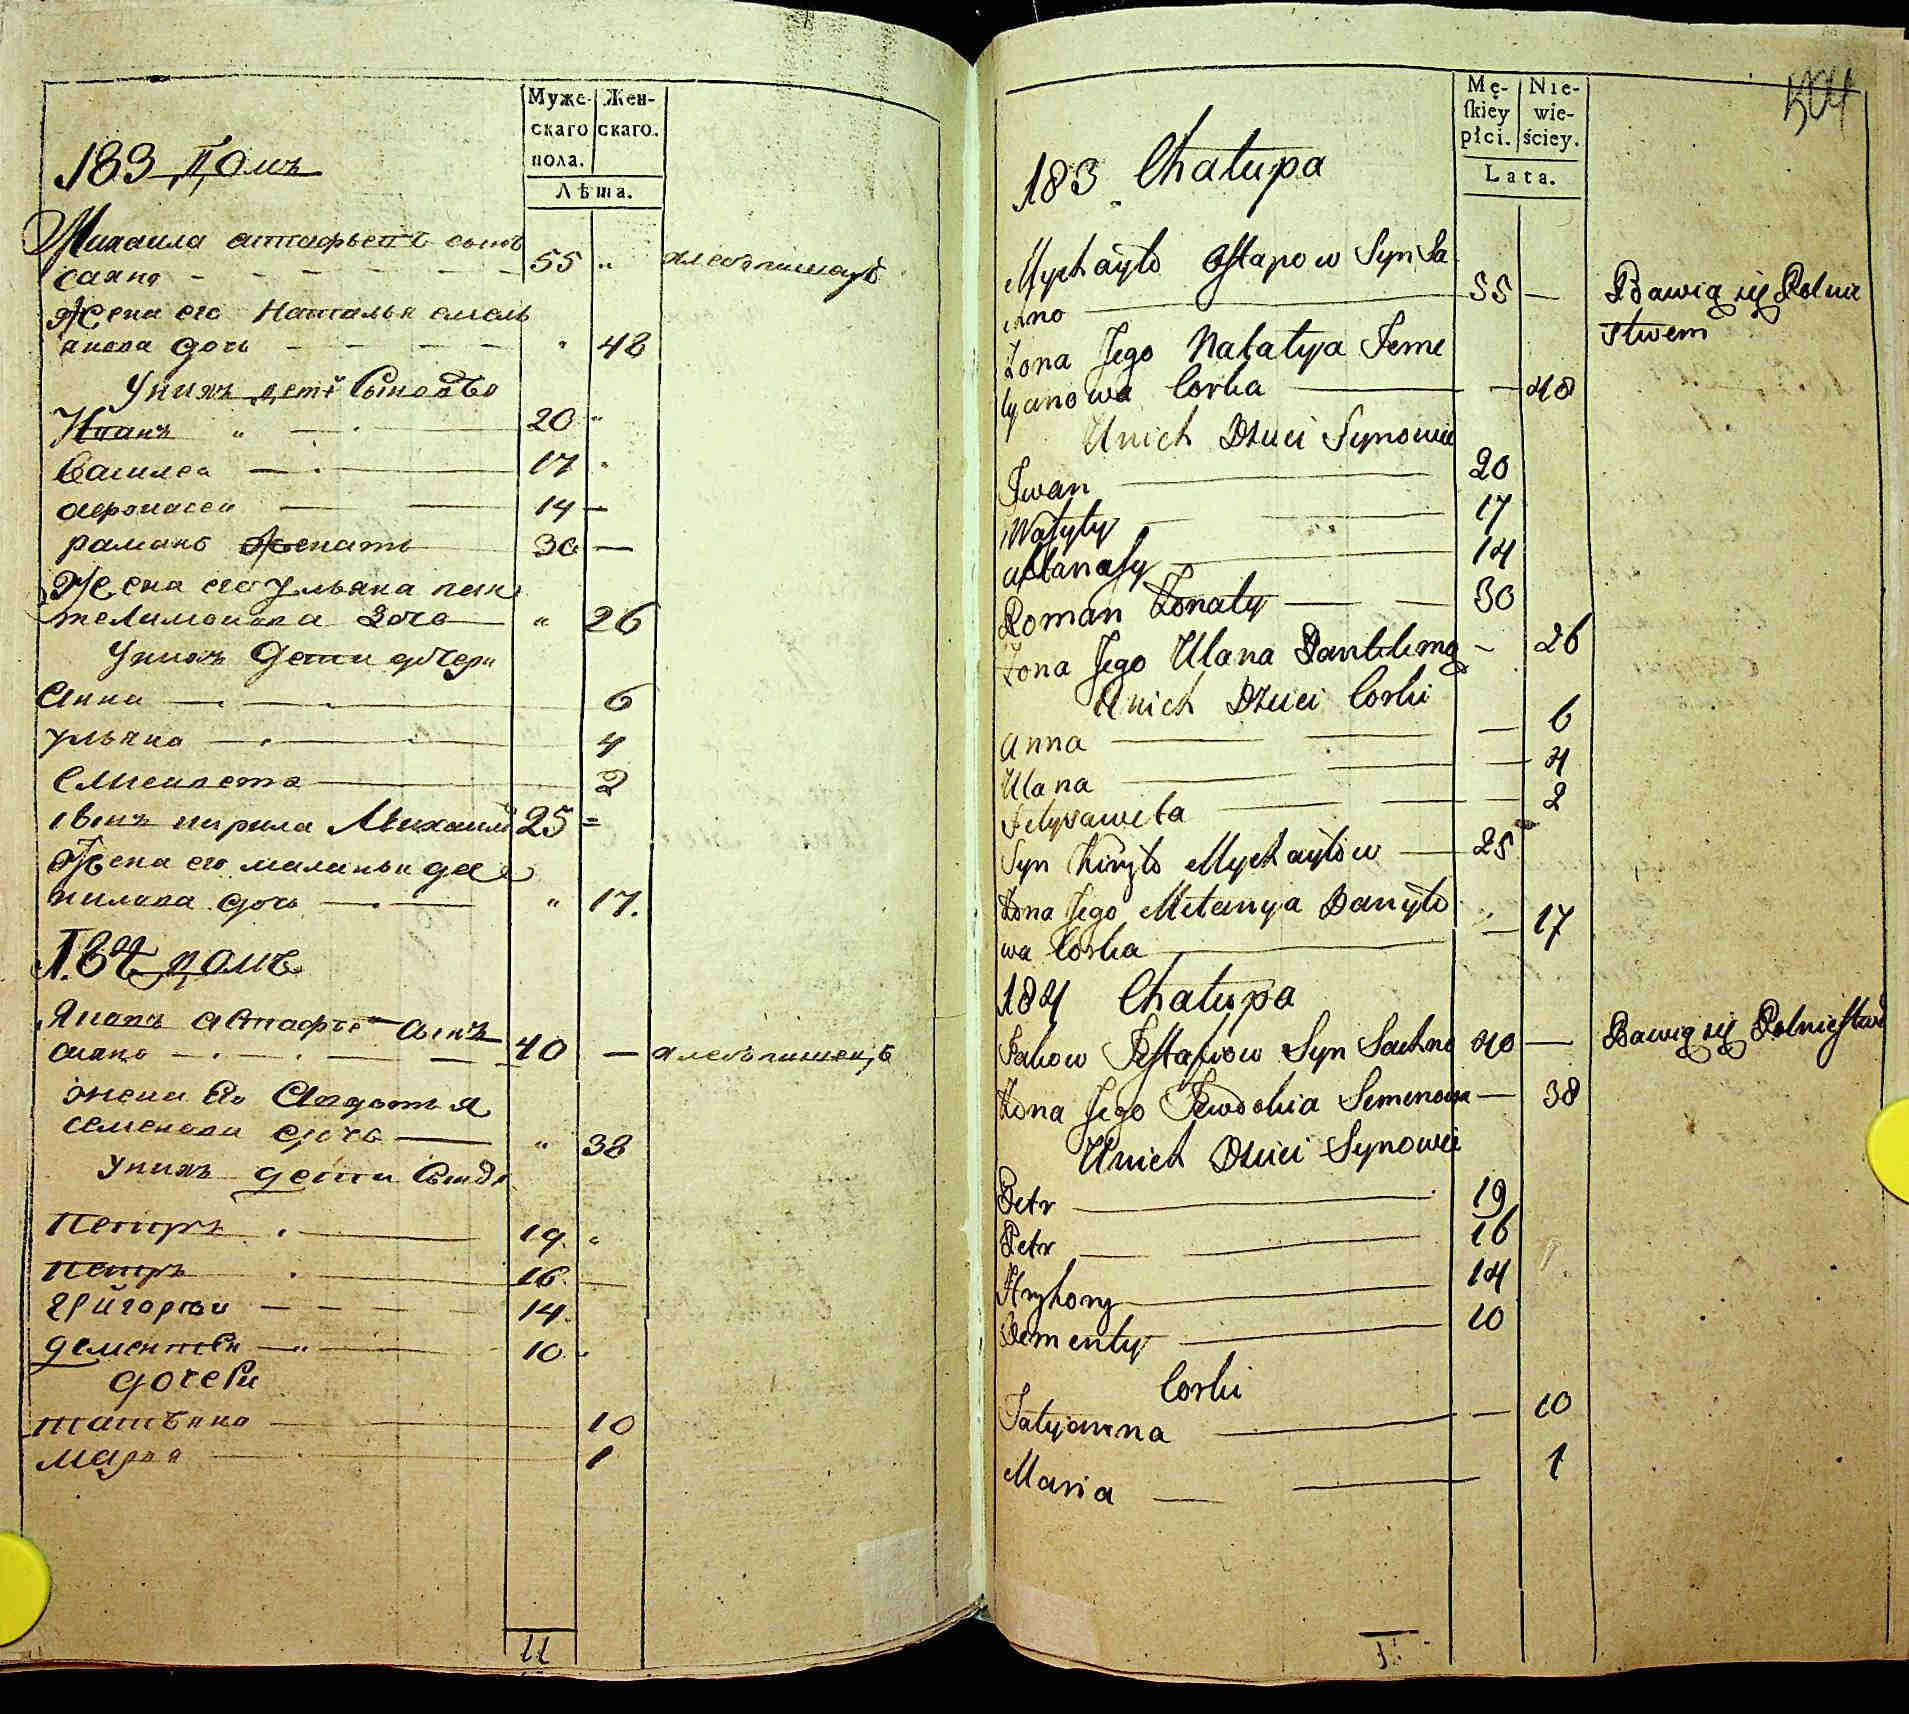 Муже-
скаго
пола.
Жен-
скаго.
Лѣта.
183 Домъ
Михаила астафьевъ сынъ
сахно 55 " хлебопашецъ
Жена его Наталья емель
янова дочь " 48
Унихъ дети Сыновья
Иванъ " 20 "
Василеи 17
афонасеи 14
романъ Женатъ 30
Жена его Ульяна пан
телимонова дочь " 26
Унихъ Дети дочери
Анна 6
ульяна 4
Елисавета 2
сынъ кирила Михаил 25
Жена его маланья да
нилова дочь " 17.
184 домъ
Яковъ астафье сынъ
сахно 40 хлебопашецъ
жена Его Авдотья
семенова дочь " 38
Унихъ дети
Петръ 19
Петръ 16
григореи 14
дементеи 10
дочери
татьяна 10
марья 1
11
504
Mę-
ſkiey
płci.
Nie-
wie-
ściey.
Lata.
183 Chałupa
Mychayło Astapow Syn Sa
chno 55 Bawią się Rolni
Żona Jego Natalya Jeme ctwem
lyanowa Corka 48
Unich Dzieci Synowie
Iwan 20
Wasyly 17
Afanasy 14
Roman Żonaty 30
Żona Jego Ulana Pantelimo 26
Unich Dzieci Corki
Anna 6
Ulana 4
Jelysaweta 2
Syn Kiryło Mychayłow 25
Żona Jego Melanya Danyło
wa Corka 17
184 Chałupa
Jakow Jestafiow Syn Sachno 40 Bawią się Rolnictwe
Żona Jego Jewdokia Semenowa 38
Unich Dzieci Synowie
Petr 19
Petr 16
Hryhory 14
Dementy 10
Corki
Tatyanna 10
Maria 1